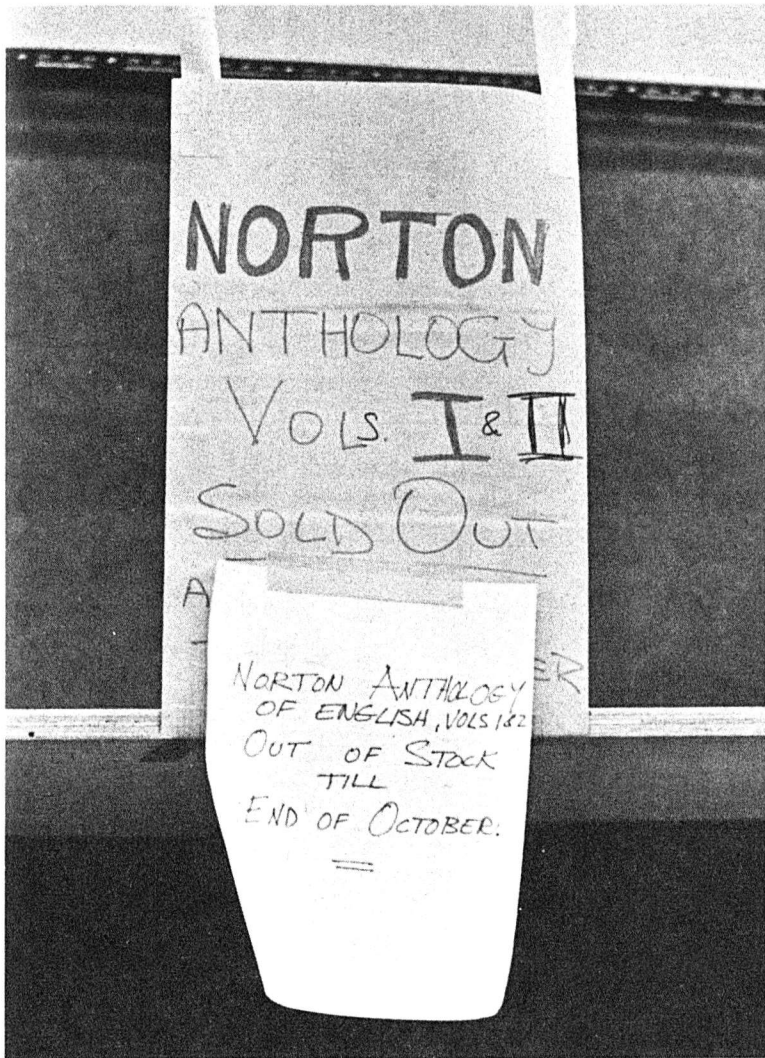 NORTON
ANTHOLOGY
VOLS. I & II
SOLD OUT
NORTON ANTHOLOGY
OF ENGLISH, VOLS 1&2
OUT OF STOCK
TILL
END OF OCTOBER.